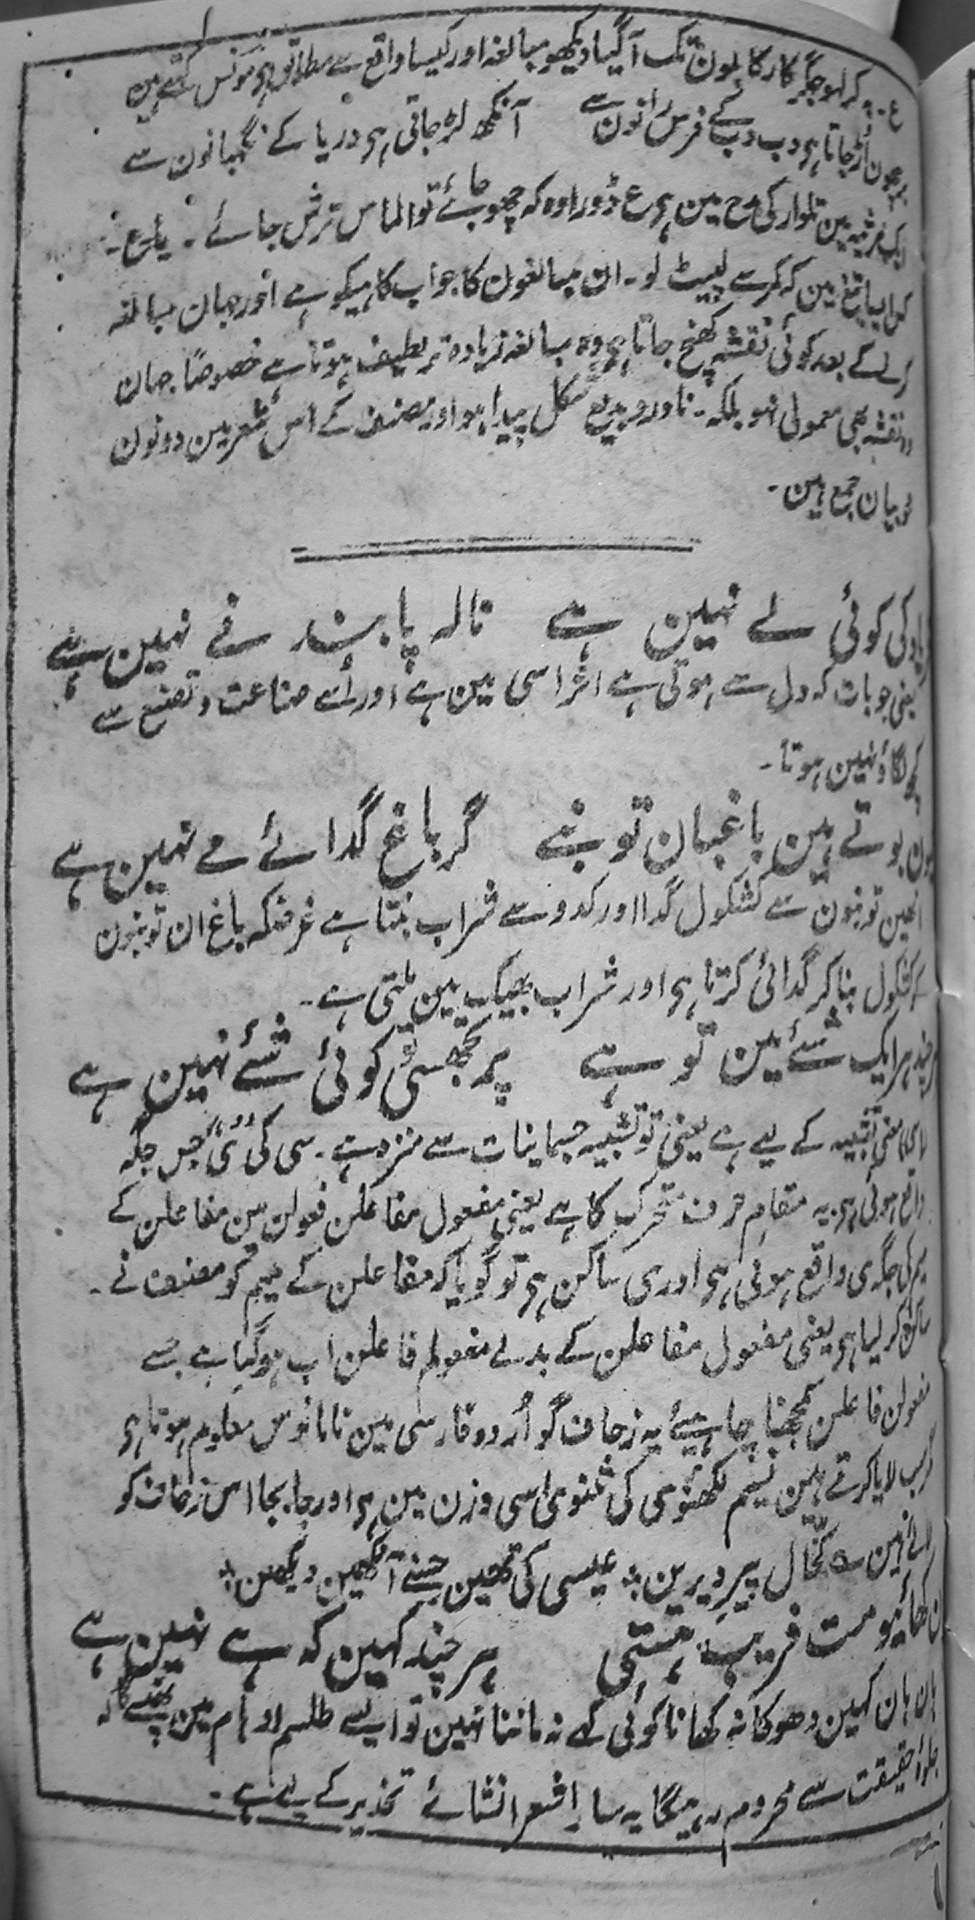 ع۔ ؞ گر لہو جگر کا رکابون تک آگیا دیکھو مبالغہ اور کیسا واقع سے مطابق ہے مونس کہتے ہین
اُڑ جاتا ہے دب دب کے فرس رانون سے آنکھ لڑ جاتی ہے دریا کے نگہبانون سے
ایک مرثیہ مین تلوار کی مدح مین ہے ع ڈورا وہ کہ چھو جائے تو الماس ترش جائے ۔ یا ع ۔
تیغ مین کہ کمر سے لپیٹ لو ۔ ان مبالغون کا جواب کاہیکو ہے اور جہان مبالغہ
کے بعد کوئی نقشہ کھنچ جاتا ہے وہ مبالغہ زیادہ تر لطیف ہوتا ہے خصوصًا جہان
نقشہ بھی معمولی نہو بلکہ ۔ نادر و بدیع شکل پیدا ہو اور مصنف کے اس شعر مین دونون
خوبیان جمع ہین ۔
کی کوئی لے نہین ہے نالہ پابند نے نہین ہے
یعنی جو بات کہ دل سے ہوتی ہے اثر اسی مین ہے اور اُسے صناعت و تصنع سے
کچھ لگاؤ نہین ہوتا ۔
کیون بوتے ہین باغبان تونبے گر باغ گدائے مے نہین ہے
انھین تونبون سے کشکول گدا اور کدوے شراب بنتا ہے غرضکہ باغ ان تونبون
کے کشکول بنا کر گدائی کرتا ہے اور شراب بھیک مین ملتی ہے ۔
ہر چند ہر ایک شئے مین تو ہے پر تجھسی تو کوئی شئے نہین ہے
تنبیہ کے لیے ہے یعنی تو تشبیہ جسمانیات سے منزہ ہے ۔ سی کی ’’ی‘‘ جس جگہ
واقع ہوئی ہے یہ مقام حرف متحرک کا ہے یعنی مفعول مفاعلن فعولن مین مفاعلن کے
میم کی جگہ ی واقع ہوئی ہے اور ی ساکن ہے تو گویا کہ مفاعلن کے میم کو مصنف نے ۔
ساکن کر لیا ہے یعنی مفعول مفاعلن کے بدلے مفعولم فاعلن اب ہو گیا ہے جسے
مفعولن فاعلن سمجھنا چاہیئے یہ زحاف گو اُردو فارسی مین نامانوس معلوم ہوتا ہے
لایا کرتے ہین نسیم لکھنوی کی مثنوی اسی وزن مین ہے اور جا بجا اس زحاف کو
لائے ہین ؎ کحّال پیر دیرین ؞ عیسی کی تھین جسنے آنکھین دیکھین ؞
ہان کھائیو مت فریب ہستی ہر چند کہین کہ ہے نہین ہے
ہان ہان کہین دھوکا نہ کھانا کوئی کہے نہ ماننا نہین تو ایسے طلسم اوہام مین پھنسے گا کہ
جلوۂ حقیقت سے محروم رہیگا یہ سارا شعر انشائے تحذیر کے لیے ہے ۔